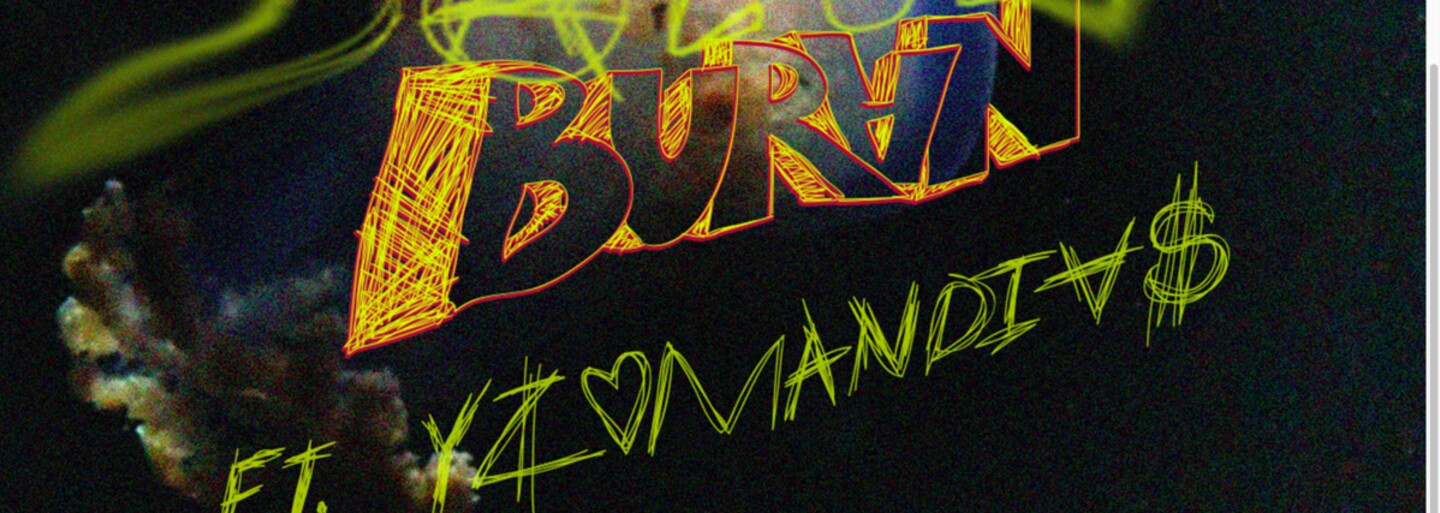 BUR∀N
FT. YZ♡MANDI∀$